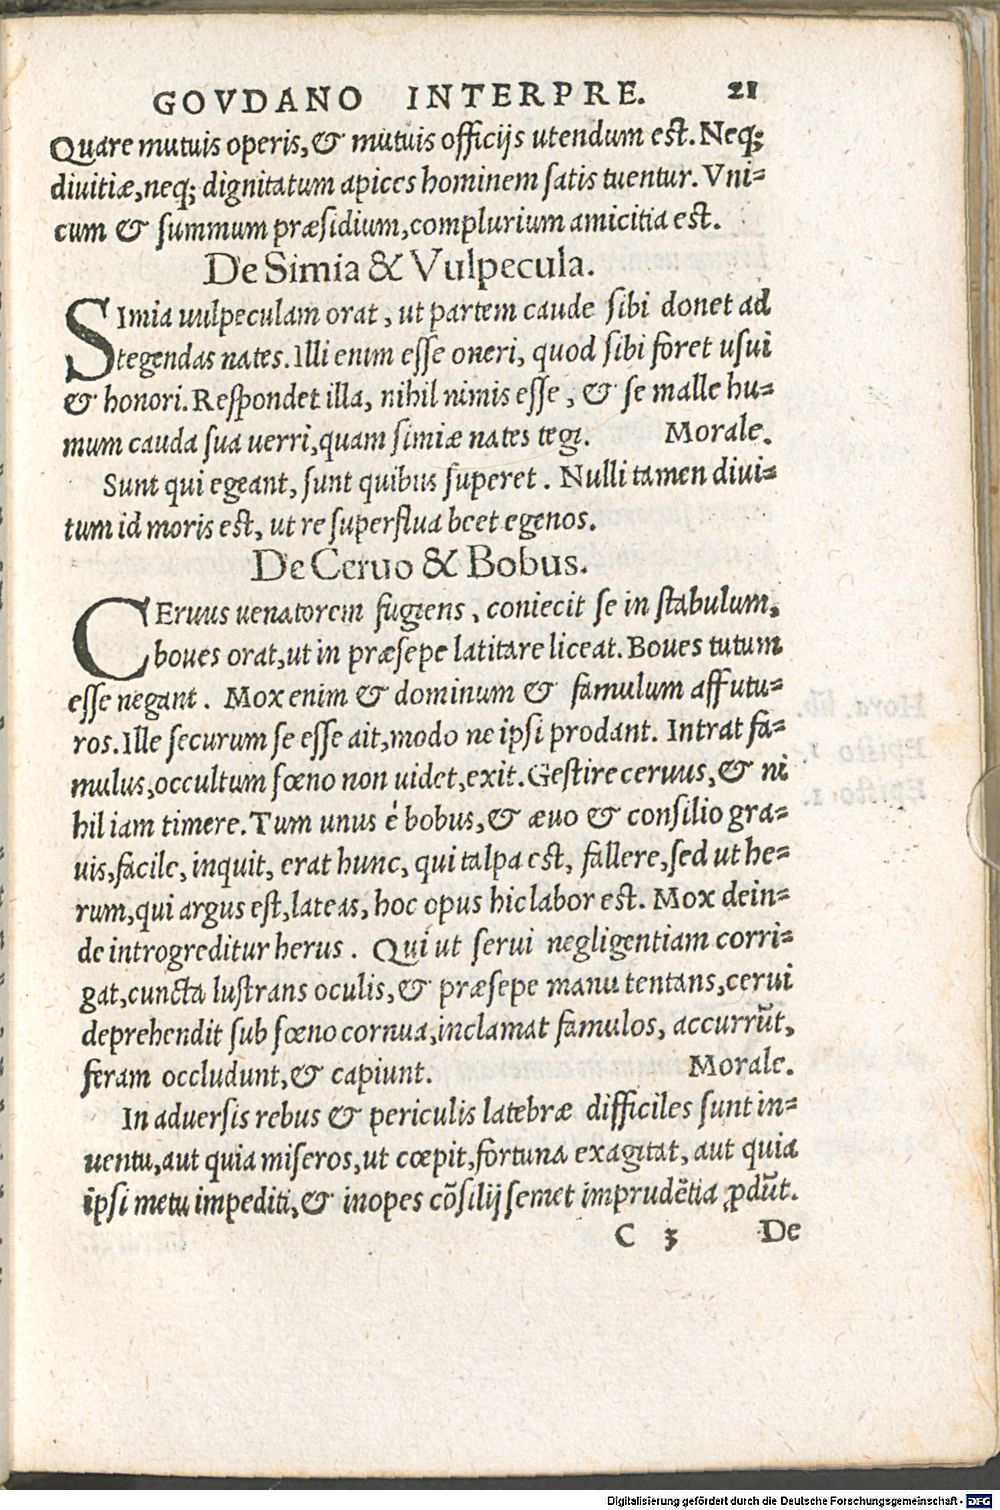 GOVDANO INTERPRE. 21
Quare mutuis operis, & mutuis officijs utendum est. Neq;
divitiæ, neq; dignitatum apices hominem satis tuentur. Vni-
cum & summum præsidium, complurium amicitia est.
De Simia & Vulpecula.
SImia uulpeculam orat, ut partem caude sibi donet ad
tegendas nates. Illi enim esse oneri, quod sibi foret usui
& honori. Respondet illa, nihil nimis esse, & se malle hu-
mum cauda sua uerri, quam simiæ nates tegi. Morale.
Sunt qui egeant, sunt quibus superet. Nulli tamen divi-
tum id moris est, ut re superflua beet egenos.
De Ceruo & Bobus.
CEruus uenatorem fugiens, coniecit se in stabulum,
boves orat, ut in præsepe latitare liceat. Boves tutum
esse negant. Mox enim & dominum & famulum affutu-
ros. Ille securum se esse ait, modo ne ipsi prodant. Intrat fa-
mulus, occultum fœno non uidet, exit. Gestire ceruus, & ni
hil iam timere. Tum unus è bobus, & ævo & consilio gra-
uis, facile, inquit, erat hunc, qui talpa est, fallere, sed ut he-
rum, qui argus est, lateas, hoc opus hic labor est. Mox dein-
de introgreditur herus. Qui ut servi negligentiam corri-
gat, cuncta lustrans oculis, & præsepe manu tentans, cervi
deprehendit sub fœno cornua, inclamat famulos, accurrũt,
feram occludunt, & capiunt. Morale.
In adversis rebus & periculis latebræ difficiles sunt in-
uentu, aut quia miseros, ut cœpit, fortuna exagitat, aut quia
ipsi metu impediti, & inopes cõsilij semet imprudẽtia ꝓdũt.
C 3 De
Digitalisierung gefördert durch die Deutsche Forschungsgemeinschaft - DFG